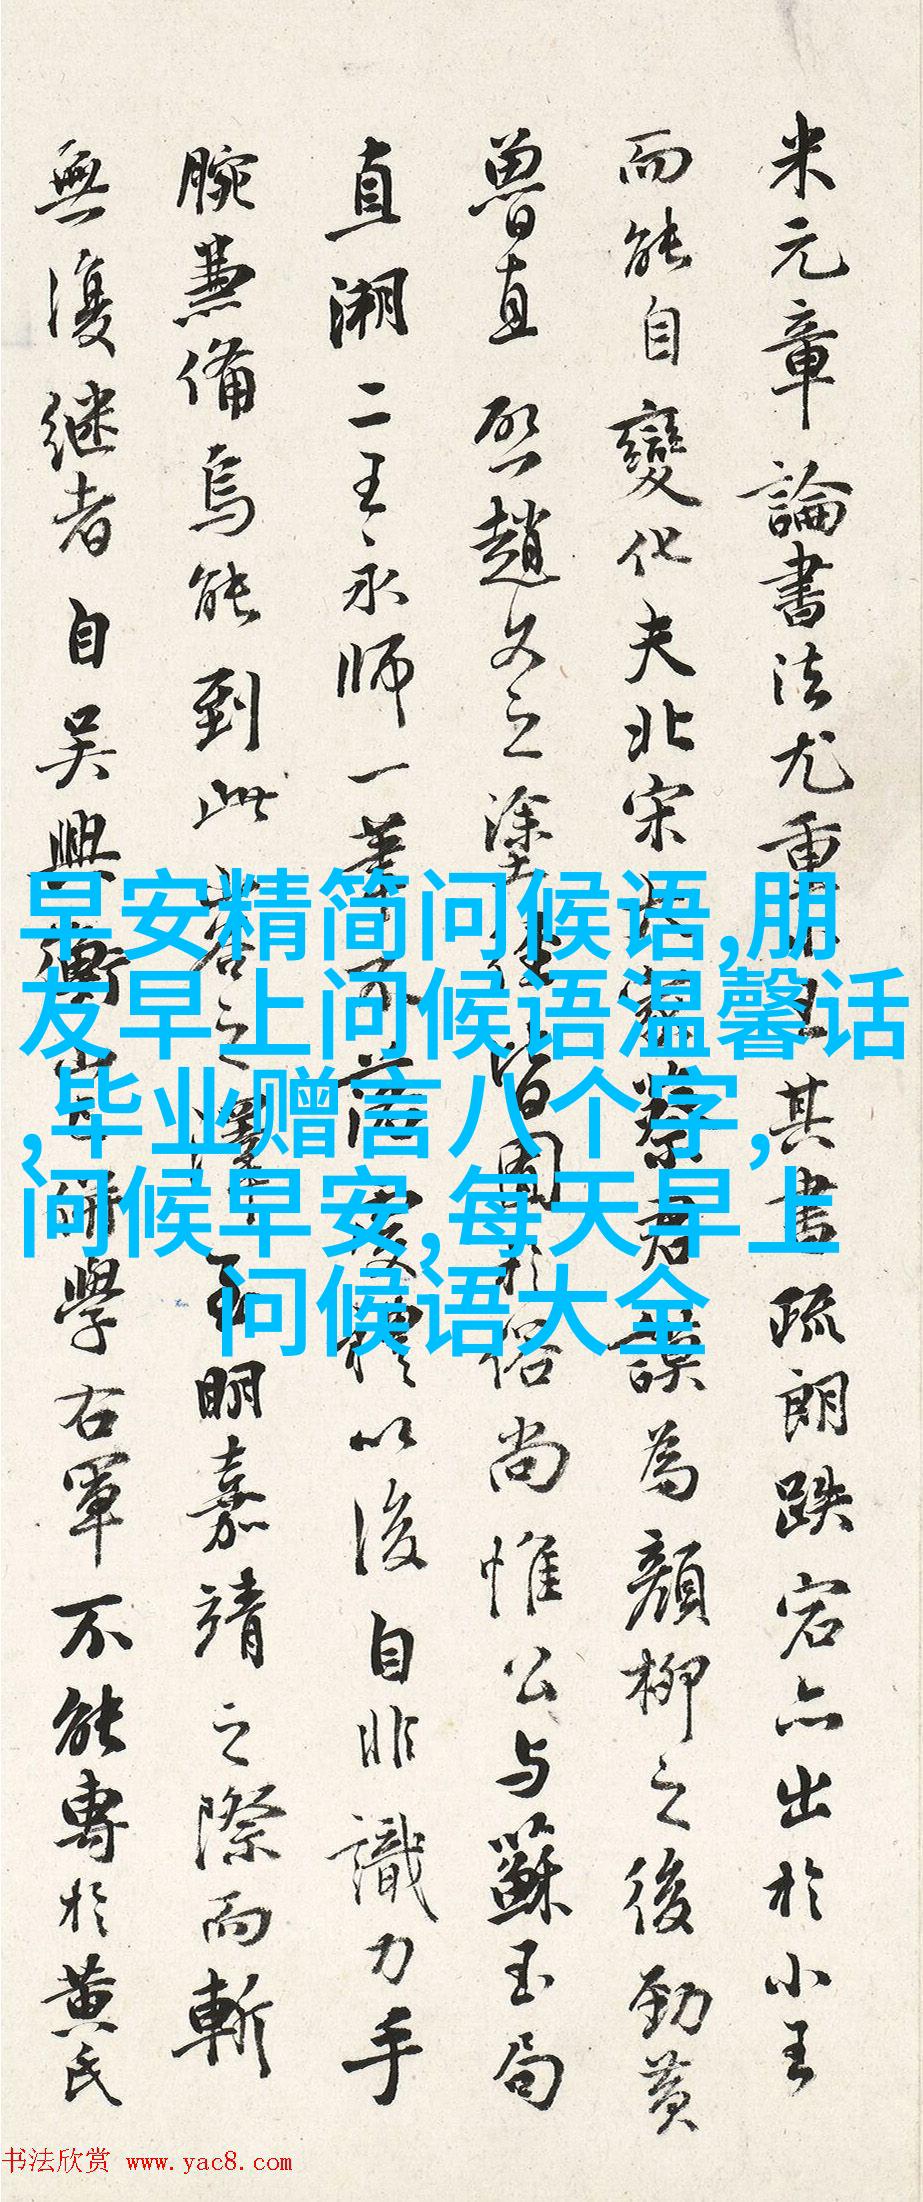 米元章論書法尤重其書疏朗跌宕亦出於小王
而能自變化夫北宋蔡君謨為顏柳之後勁黄
魯直趙文之塗皆囿於俗尚惟公与蘇玉局
直溯二王永師一筆不落體以後自非識力手
腕兼備焉能到此之澤至明嘉靖之際而斬
無復継者自吴興衡山學右軍不能專於黄氏
早安精简问候语,朋
友早上问候语温馨话
,毕业赠言八个字,
问候早安,每天早上
问候语大全
书法欣赏 www.yac8.com